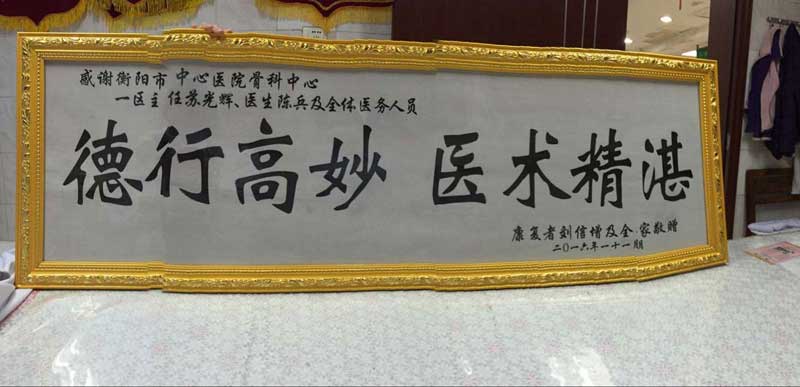 感谢衡阳市中心医院骨科中心
一区主任苏光辉、医生陈兵及全体医务人员
德行高妙 医术精湛
康复者刘信增及全家敬赠
二〇一六年十一月